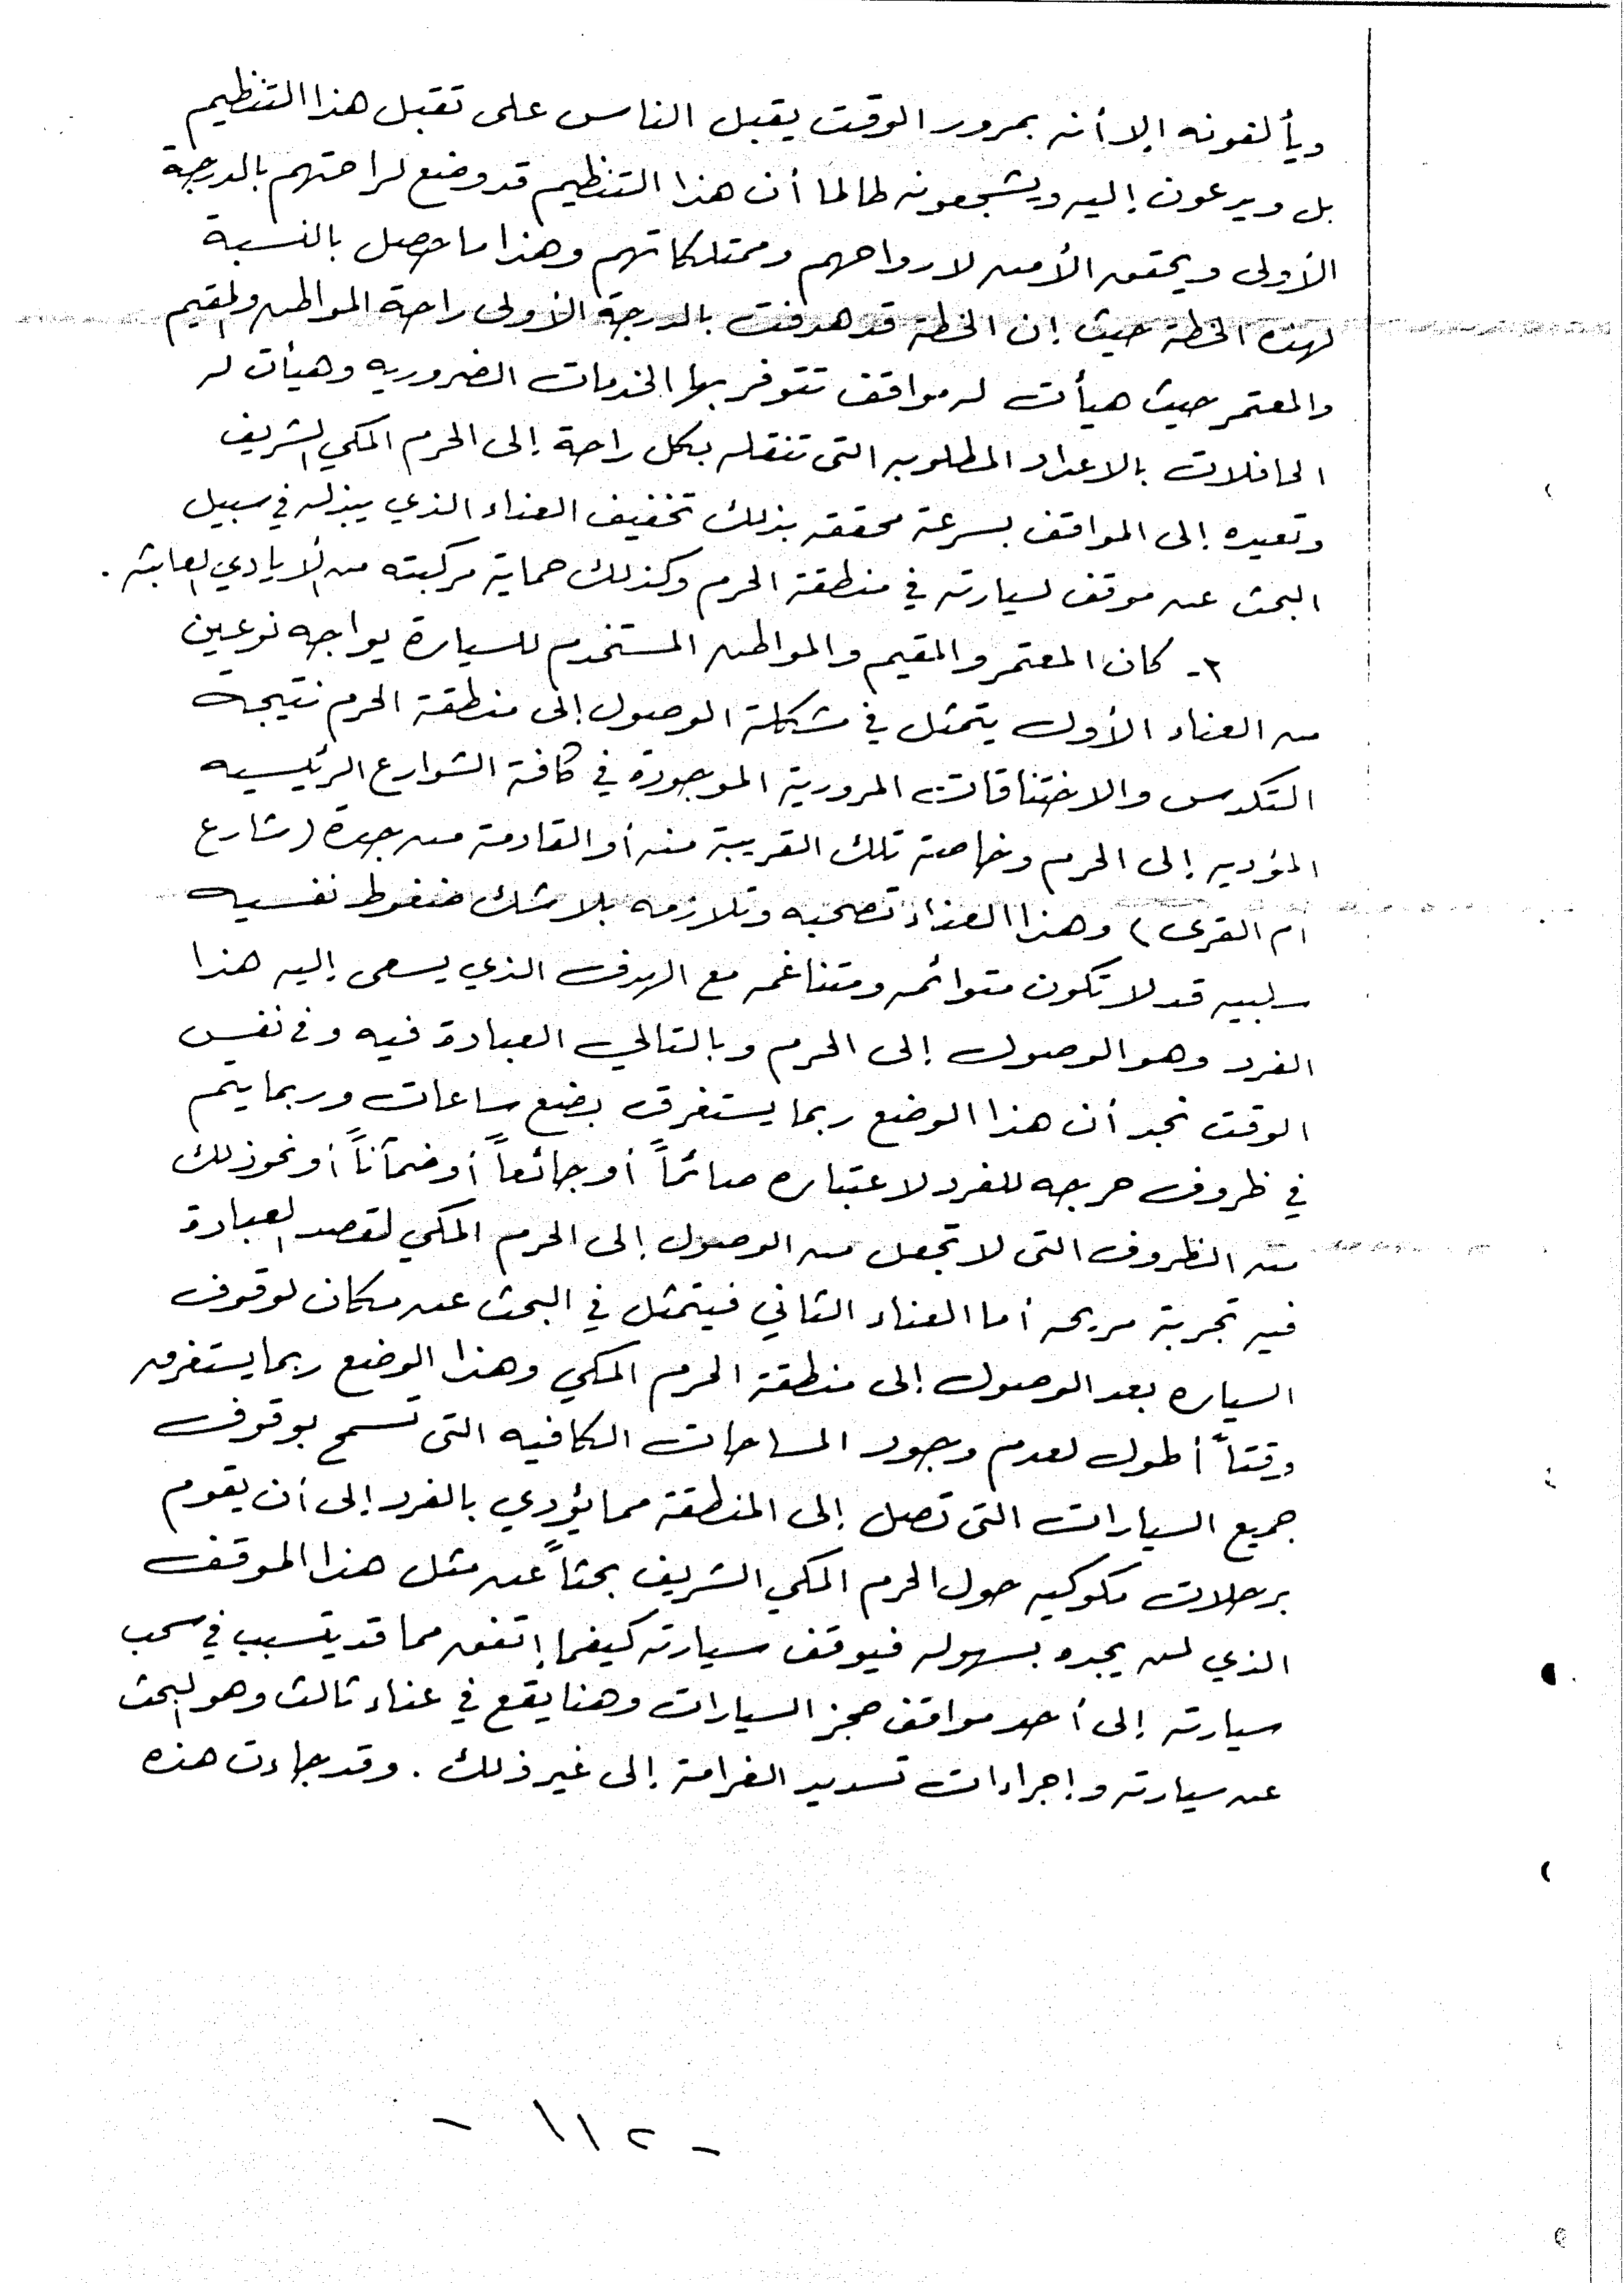 ويألفونه إلا أنه بمرور الوقت يقبل الناس على تقبل هذا التنظيم
بل ويدعون إليه ويشجعونه طالما أن هذا التنظيم قد وضع لراحتهم بالدرجة
الأولى ويحقق الأمن لارواحهم وممتلكاتهم وهذا ما حصل بالنسبة
لهذه الخطة حيث إن الخطة قد هدفت بالدرجة الأولى راحة المواطن والمقيم
والمعتمر حيث هيأت له مواقف تتوفر بها الخدمات الضروريه وهيأت له
الحافلات بالاعداد المطلوبه التى تنقله بكل راحة إلى الحرم المكي الشريف
وتعيده إلى المواقف بسرعة محققه بذلك تخفيف العناء الذي يبذله في سبيل
البحث عن موقف لسيارته في منطقة الحرم وكذلك حماية مركبته من الأيادي العابثه .
٢- كان المعتمر والمقيم والمواطن المستخدم للسيارة يواجه نوعين
من العناء الأول يتمثل في مشكلة الوصول إلى منطقة الحرم نتيجة
التكدس والاختناقات المرورية الموجودة في كافة الشوارع الرئيسيه
المؤديه إلى الحرم وخاصة تلك القريبة منه أو القادمة من جدة (شارع
ام القرى) وهذا العناء تصحبه وتلازمه بلا شك ضغوط نفسيه
سلبيه قد لا تكون متوائمه ومتناغمه مع الهدف الذي يسعى إليه هذا
الفرد وهو الوصول إلى الحرم وبالتالي العبادة فيه وفى نفس
الوقت نجد أن هذا الوضع ربما يستغرق بضع ساعات وربما يتم
في ظروف حرجه للفرد لاعتباره صائماً أو جائعاً أو ضمآناً أو نحو ذلك
من الظروف التى لا تجعل من الوصول إلى الحرم المكي لقصد العبادة
فيه تجربة مريحه أما العناء الثاني فيتمثل في البحث عن مكان لوقوف
السياره بعد الوصول إلى منطقة الحرم المكي وهذا الوضع ربما يستغرق
وقتاً أطول لعدم وجود المساحات الكافيه التى تسمح بوقوف
جميع السيارات التى تصل إلى المنطقة مما يؤدي بالفرد إلى أن يقوم
برحلات مكوكيه حول الحرم المكي الشريف بحثاً عن مثل هذا الموقف
الذي لن يجده بسهوله فيوقف سيارته كيفما إتفق مما قد يتسبب في سحب
سيارته إلى أحد مواقف حجز السيارات وهنا يقع في عناء ثالث وهو البحث
عن سيارته وإجراءات تسديد الغرامة إلى غير ذلك . وقد جاءت هذه
- ١١٢ -